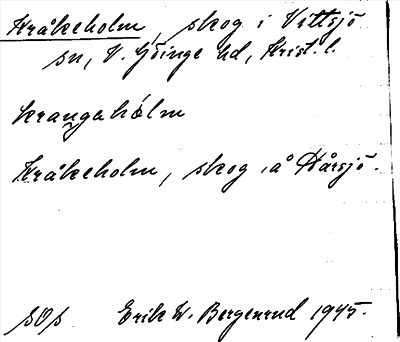 Kråkeholm, skog i Vittsjö
sn, V. Göinge hd, Krist. l.
krangahólm
Kråkeholm, skog, å Hårsjö.
sOs Erik W. Bergenrud 1945.